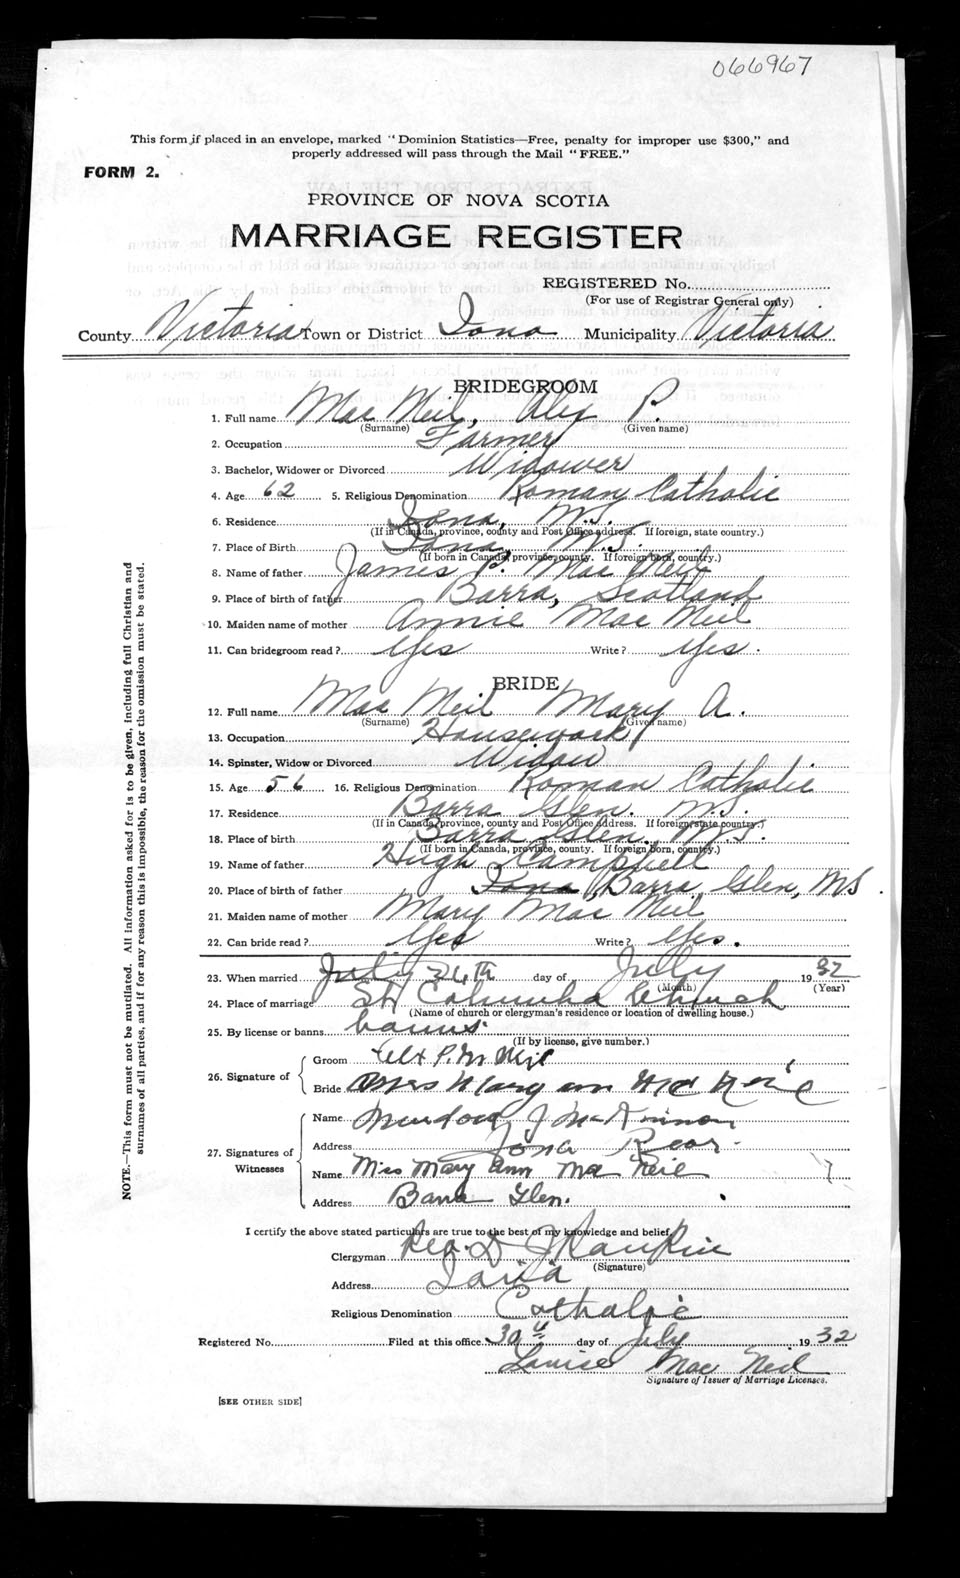 066967
This form if placed in an envelope, marked "Dominion Statistics—Free, penalty for improper use $300," and
properly addressed will pass through the Mail "FREE."
FORM 2.
PROVINCE OF NOVA SCOTIA
MARRIAGE REGISTER
REGISTERED No.
(For use of Registrar General only)
County Victoria Town or District Iona Municipality Victoria
BRIDEGROOM
1. Full name Mac Neil, Alex P.
(Surname) (Given name)
2. Occupation Farmer
3. Bachelor, Widower or Divorced Widower
4. Age 62 5. Religious Denomination Roman Catholic
6. Residence Iona, N.S.
(If in Canada, province, county and Post Office address. If foreign, state country.)
7. Place of Birth Iona, N.S.
(If born in Canada, province, county. If foreign born, country.)
8. Name of father James P. Mac Neil
9. Place of birth of father Barra, Scotland
10. Maiden name of mother Annie Mac Neil
11. Can bridegroom read? Yes Write? Yes.
BRIDE
12. Full name Mac Neil Mary A.
(Surname) (Given name)
13. Occupation Housework
14. Spinster, Widow or Divorced Widow
15. Age 56 16. Religious Denomination Roman Catholic
17. Residence Barra Glen. N.S.
(If in Canada, province, county and Post Office address. If foreign, state country.)
18. Place of birth Barra Glen, N.S.
(If born in Canada, province, county. If foreign born, country.)
19. Name of father Hugh Campbell
20. Place of birth of father Iona, Barra, Glen, N.S.
21. Maiden name of mother Mary Mac Neil
22. Can bride read? Yes Write? Yes.
23. When married July 26th day of July 1932
(Month) (Year)
24. Place of marriage St Columba Church
(Name of church or clergyman's residence or location of dwelling house.)
25. By license or banns banns.
(If by license, give number.)
26. Signature of
Groom Alex P. Mc Neil
Bride Mrs Mary ann Mc Neil
27. Signatures of Witnesses
Name Murdock J McKinnon
Address Iona Rear.
Name Miss Mary Ann Mac Neil
Address Barra Glen.
I certify the above stated particulars are true to the best of my knowledge and belief.
Clergyman Rev. D J Rankin
(Signature)
Address Iona
Religious Denomination Catholic
Registered No. Filed at this office 30th day of July 1932
Louise Mac Neil
Signature of Issuer of Marriage Licenses.
[SEE OTHER SIDE]
NOTE.—This form must not be mutilated. All information asked for is to be given, including full Christian and
surnames of all parties, and if for any reason this is impossible, the reason for the omission must be stated.